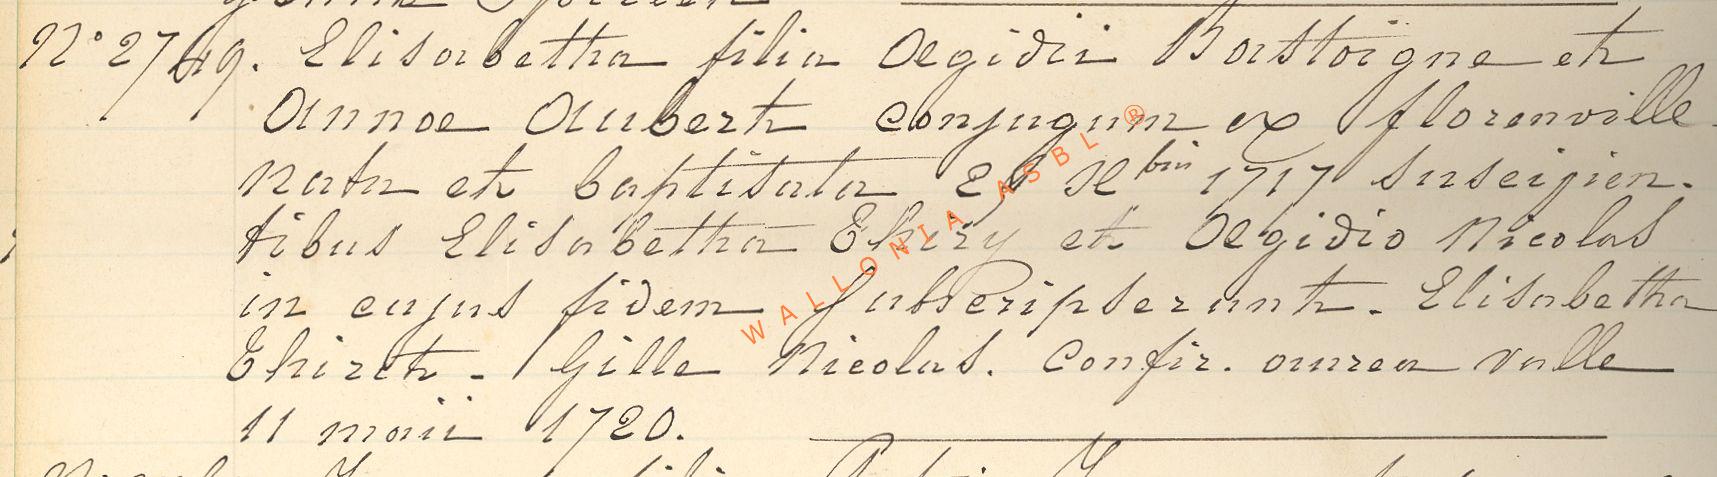 N° 2749. Elisabetha filia Aegidii Bastoigne et
Annae Aubert conjugum ex florenville
nata et baptisata 29 Xbris 1717 suscipien-
tibus Elisabetha Thiry et Aegidio Nicolas
in cujus fidem subscripserunt. Elisabetha
Thiret - Gille Nicolas. Confir. aurea valle
11 maii 1720.
WALLONIA ASBL ®